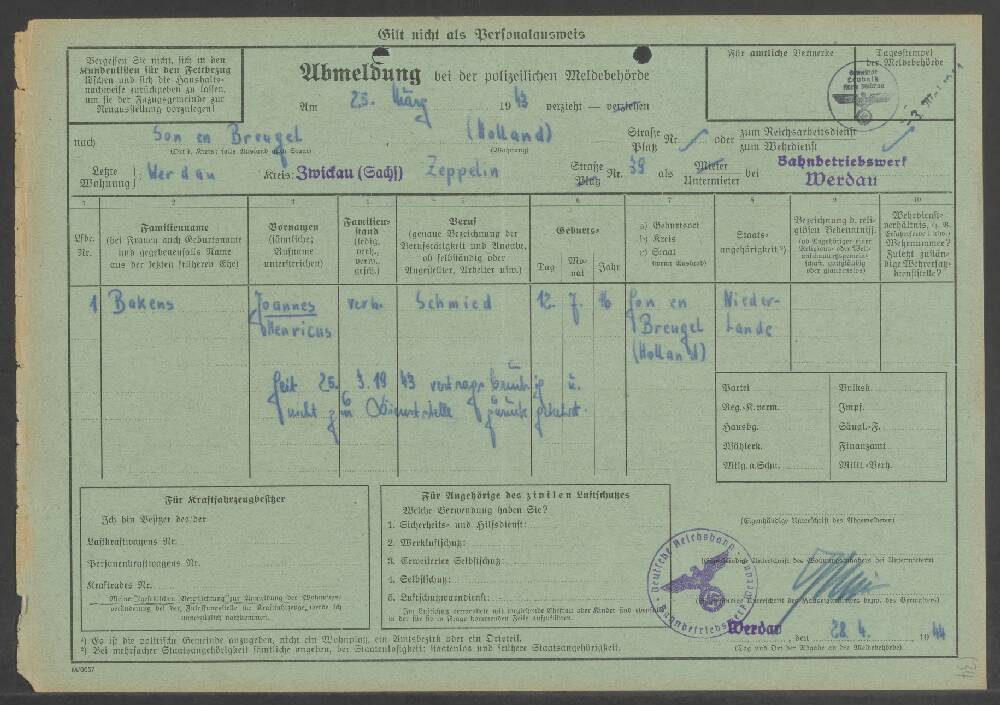 Gilt nicht als Personalausweis
Vergessen Sie nicht, sich in den
Kundenlisten für den Fettbezug
löschen und sich die Haushalts-
nachweise zurückgeben zu lassen,
um sie der Zuzugsgemeinde zur
Neuausstellung vorzulegen!
Abmeldung bei der polizeilichen Meldebehörde
Für amtliche Vermerke
Tagesstempel
der Meldebehörde
Am 25. März 1943 verzieht — verziehen
nach Son en Breugel (Holland) Straße Platz Nr. oder zum Reichsarbeitsdienst
zum Wehrdienst
(Wohnung)
Letzte Wohnung: Werdau Kreis: Zwickau (Sachs) Zeppelin Straße Platz Nr. 39 als Mieter Untermieter bei Bahnbetriebswerk
Werdau
1 2 3 4 5 6 7 8 9 10
Lfde. Nr.
Familienname
(bei Frauen auch Geburtsname
und gegebenenfalls Name
aus der letzten früheren Ehe)
Vornamen
(sämtliche;
Rufname
unterstreichen)
Familien-
stand
(ledig,
verh.,
verw.,
gesch.)
Beruf
(genaue Bezeichnung der
Berufstätigkeit und Angabe,
ob selbständig oder
Angestellter, Arbeiter usw.)
Geburts-
Tag Mo-
nat Jahr
a) Geburtsort
b) Kreis
c) Staat
(wenn Ausland)
Staats-
angehörigkeit²)
Bezeichnung d. reli-
giösen Bekenntniss.
Wehrdienst-
verhältnis,
Wehrnummer?
Zuletzt zustän-
dige Wehrersatz-
dienststelle?
1 Bakens Joannes verh. Schmied 12. 7. 16 Son en Nieder-
Henricus Breugel Lande
(Holland)
Seit 25. 3. 1943 vertragsbrüchig u.
nicht zur Dienststelle zurück gekehrt.
Partei Volksk.
Reg.-K. verm. Impf.
Hausbg. Säugl.-F.
Wählerk. Finanzamt
Mitlg. a. Schu. Milit.-Verh.
Für Kraftfahrzeugbesitzer
Ich bin Besitzer des der
Lastkraftwagens Nr.
Personenkraftwagens Nr.
Kraftrades Nr.
Für Angehörige des zivilen Luftschutzes
Welche Verwendung haben Sie?
1. Sicherheits- und Hilfsdienst:
2. Werkluftschutz:
3. Erweiterter Selbstschutz:
4. Selbstschutz:
5. Luftschutzwarndienst:
(Eigenhändige Unterschrift des Abmeldenden)
Deutsche Reichsbahn
Werdau, den 28. 4. 1944
(Tag und Ort der Abgabe an die Meldebehörde)
¹) Es ist die politische Gemeinde anzugeben, nicht ein Wohnplatz, ein Amtsbezirk oder ein Ortsteil.
²) Bei mehrfacher Staatsangehörigkeit sämtliche angeben, bei Staatenlosigkeit: staatenlos und frühere Staatsangehörigkeit.